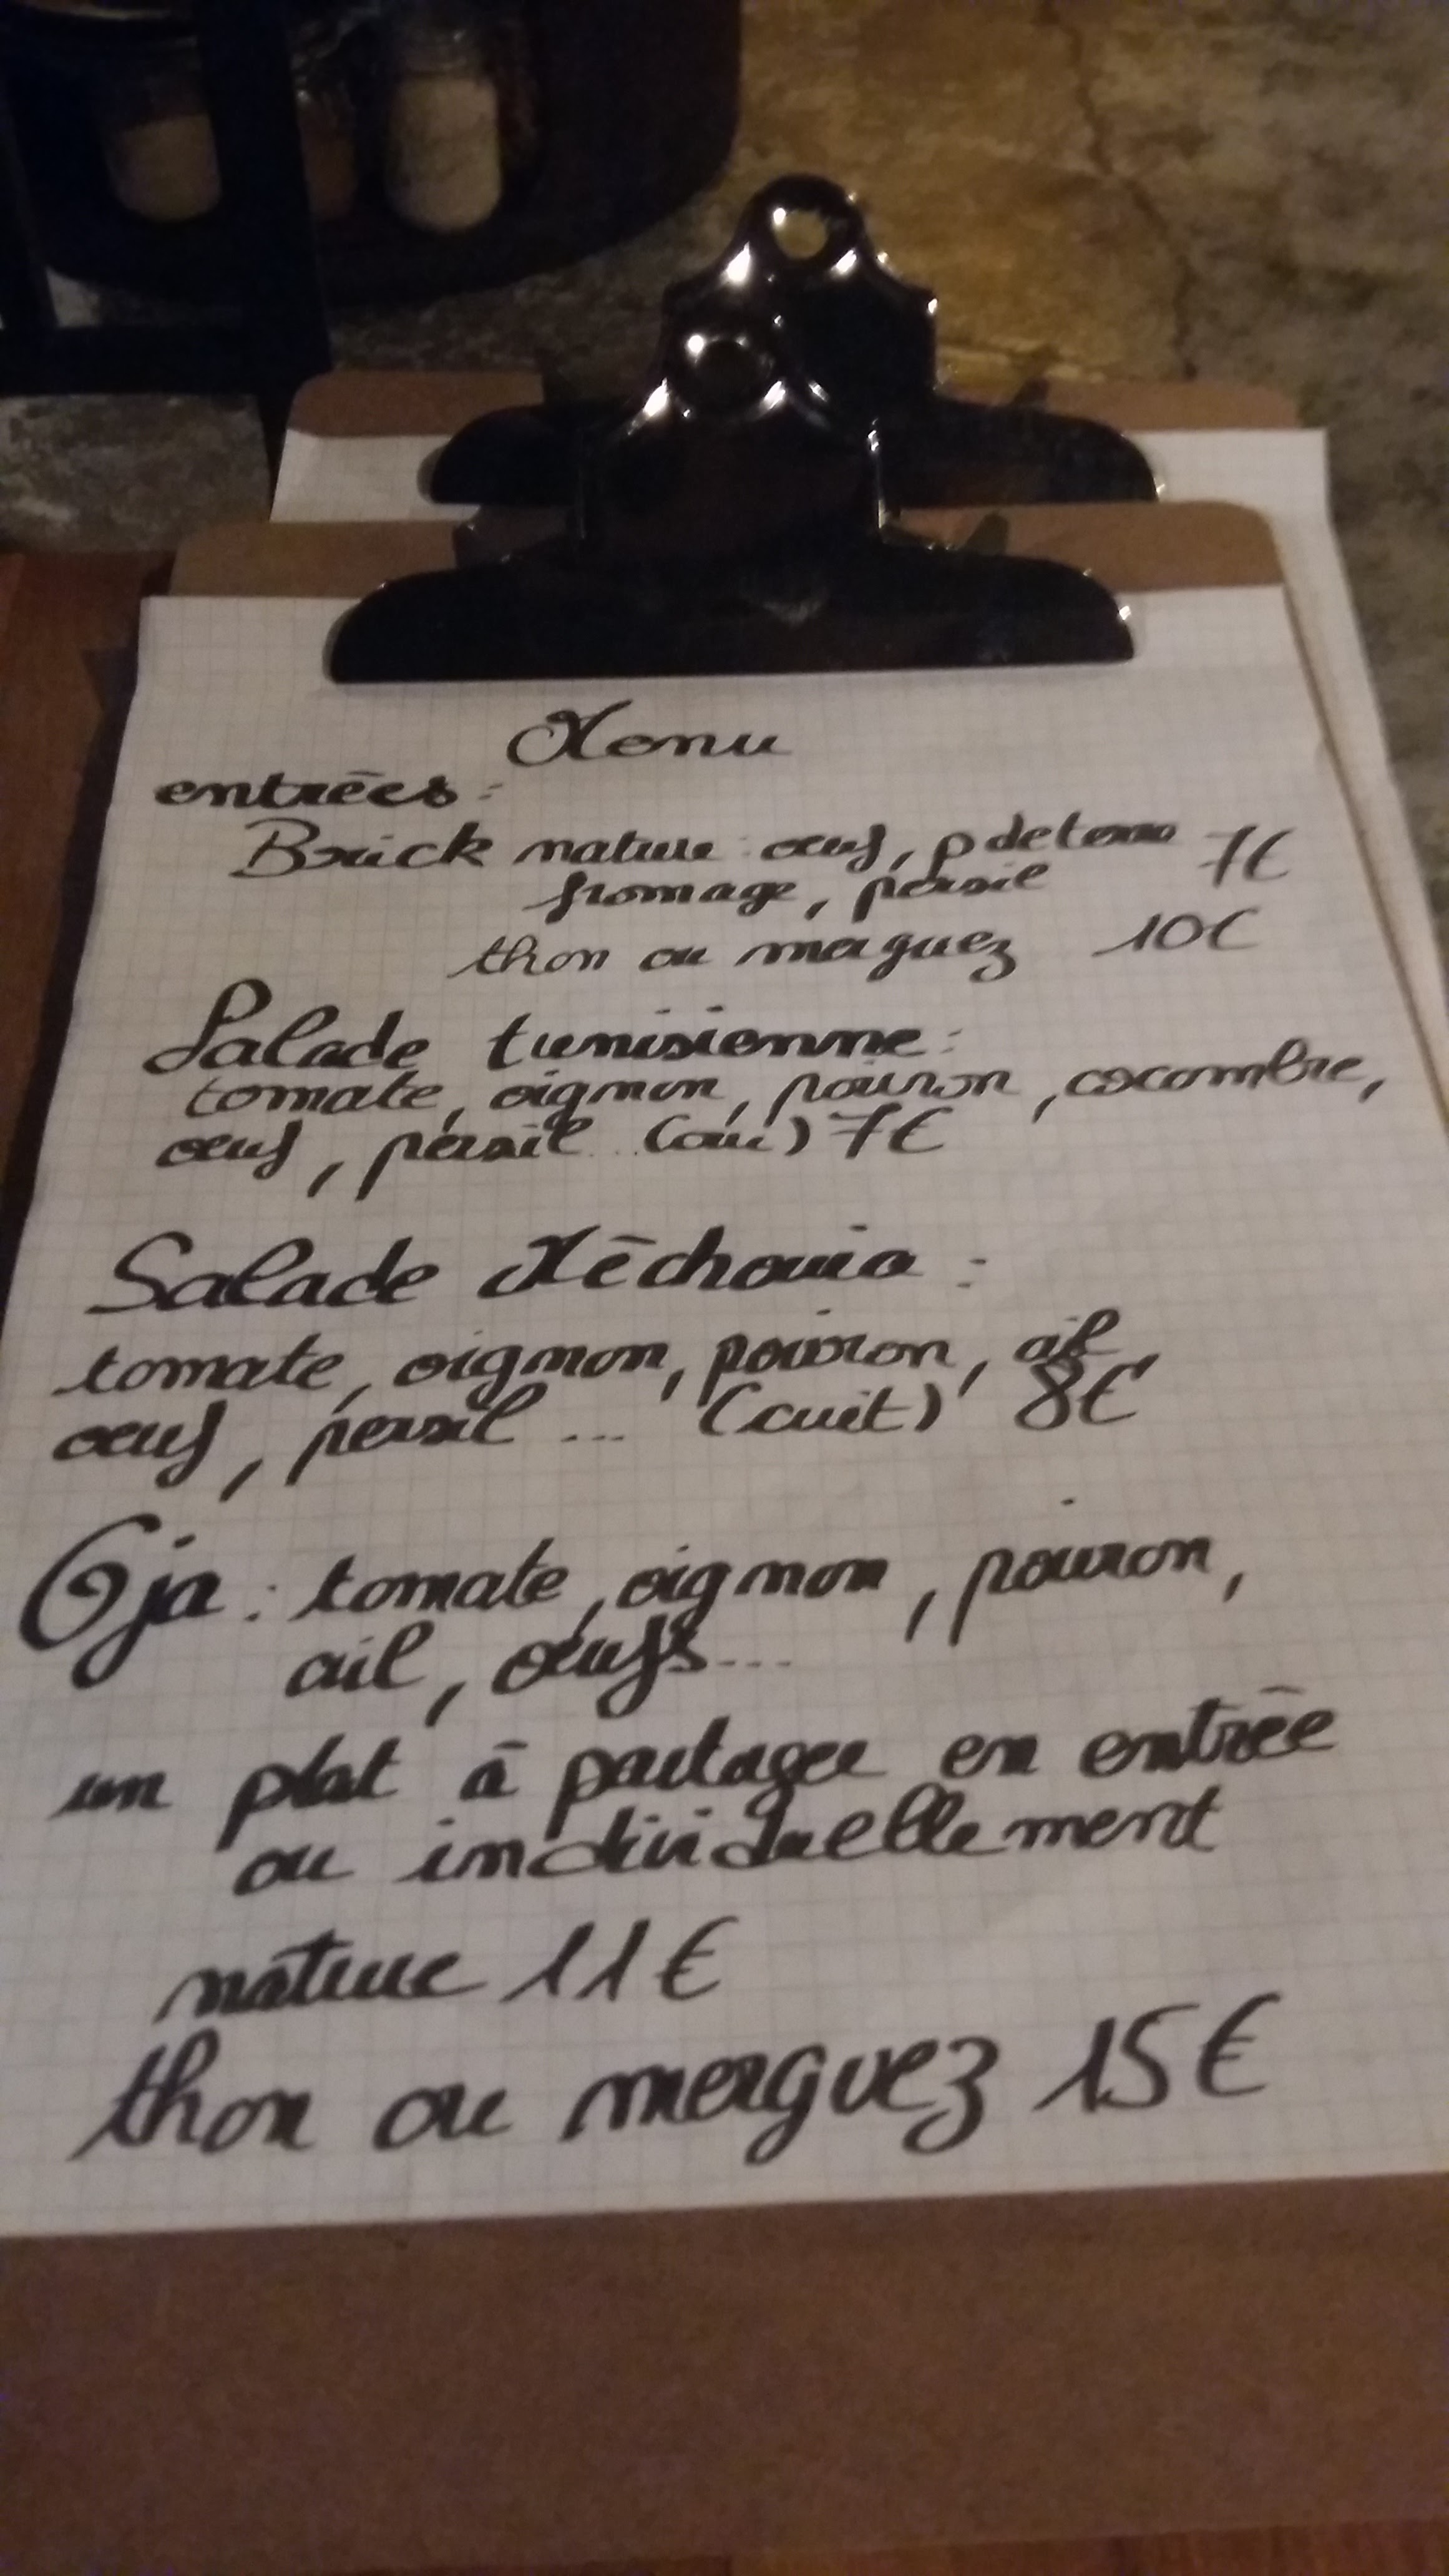 Menu
entrées :
Brick nature : œuf, p de terre 7€
fromage, persil
thon ou merguez 10€
Salade tunisienne :
tomate, oignon, poivron, cocombre,
œuf, persil ... (cru) 7€
Salade Méchouia :
tomate, oignon, poivron, ail
œuf, persil ... (cuit) 8€
Ojja : tomate, oignon, poivron,
ail, œufs...
un plat à partager en entrée
ou individuellement
nature 11€
thon ou merguez 15€